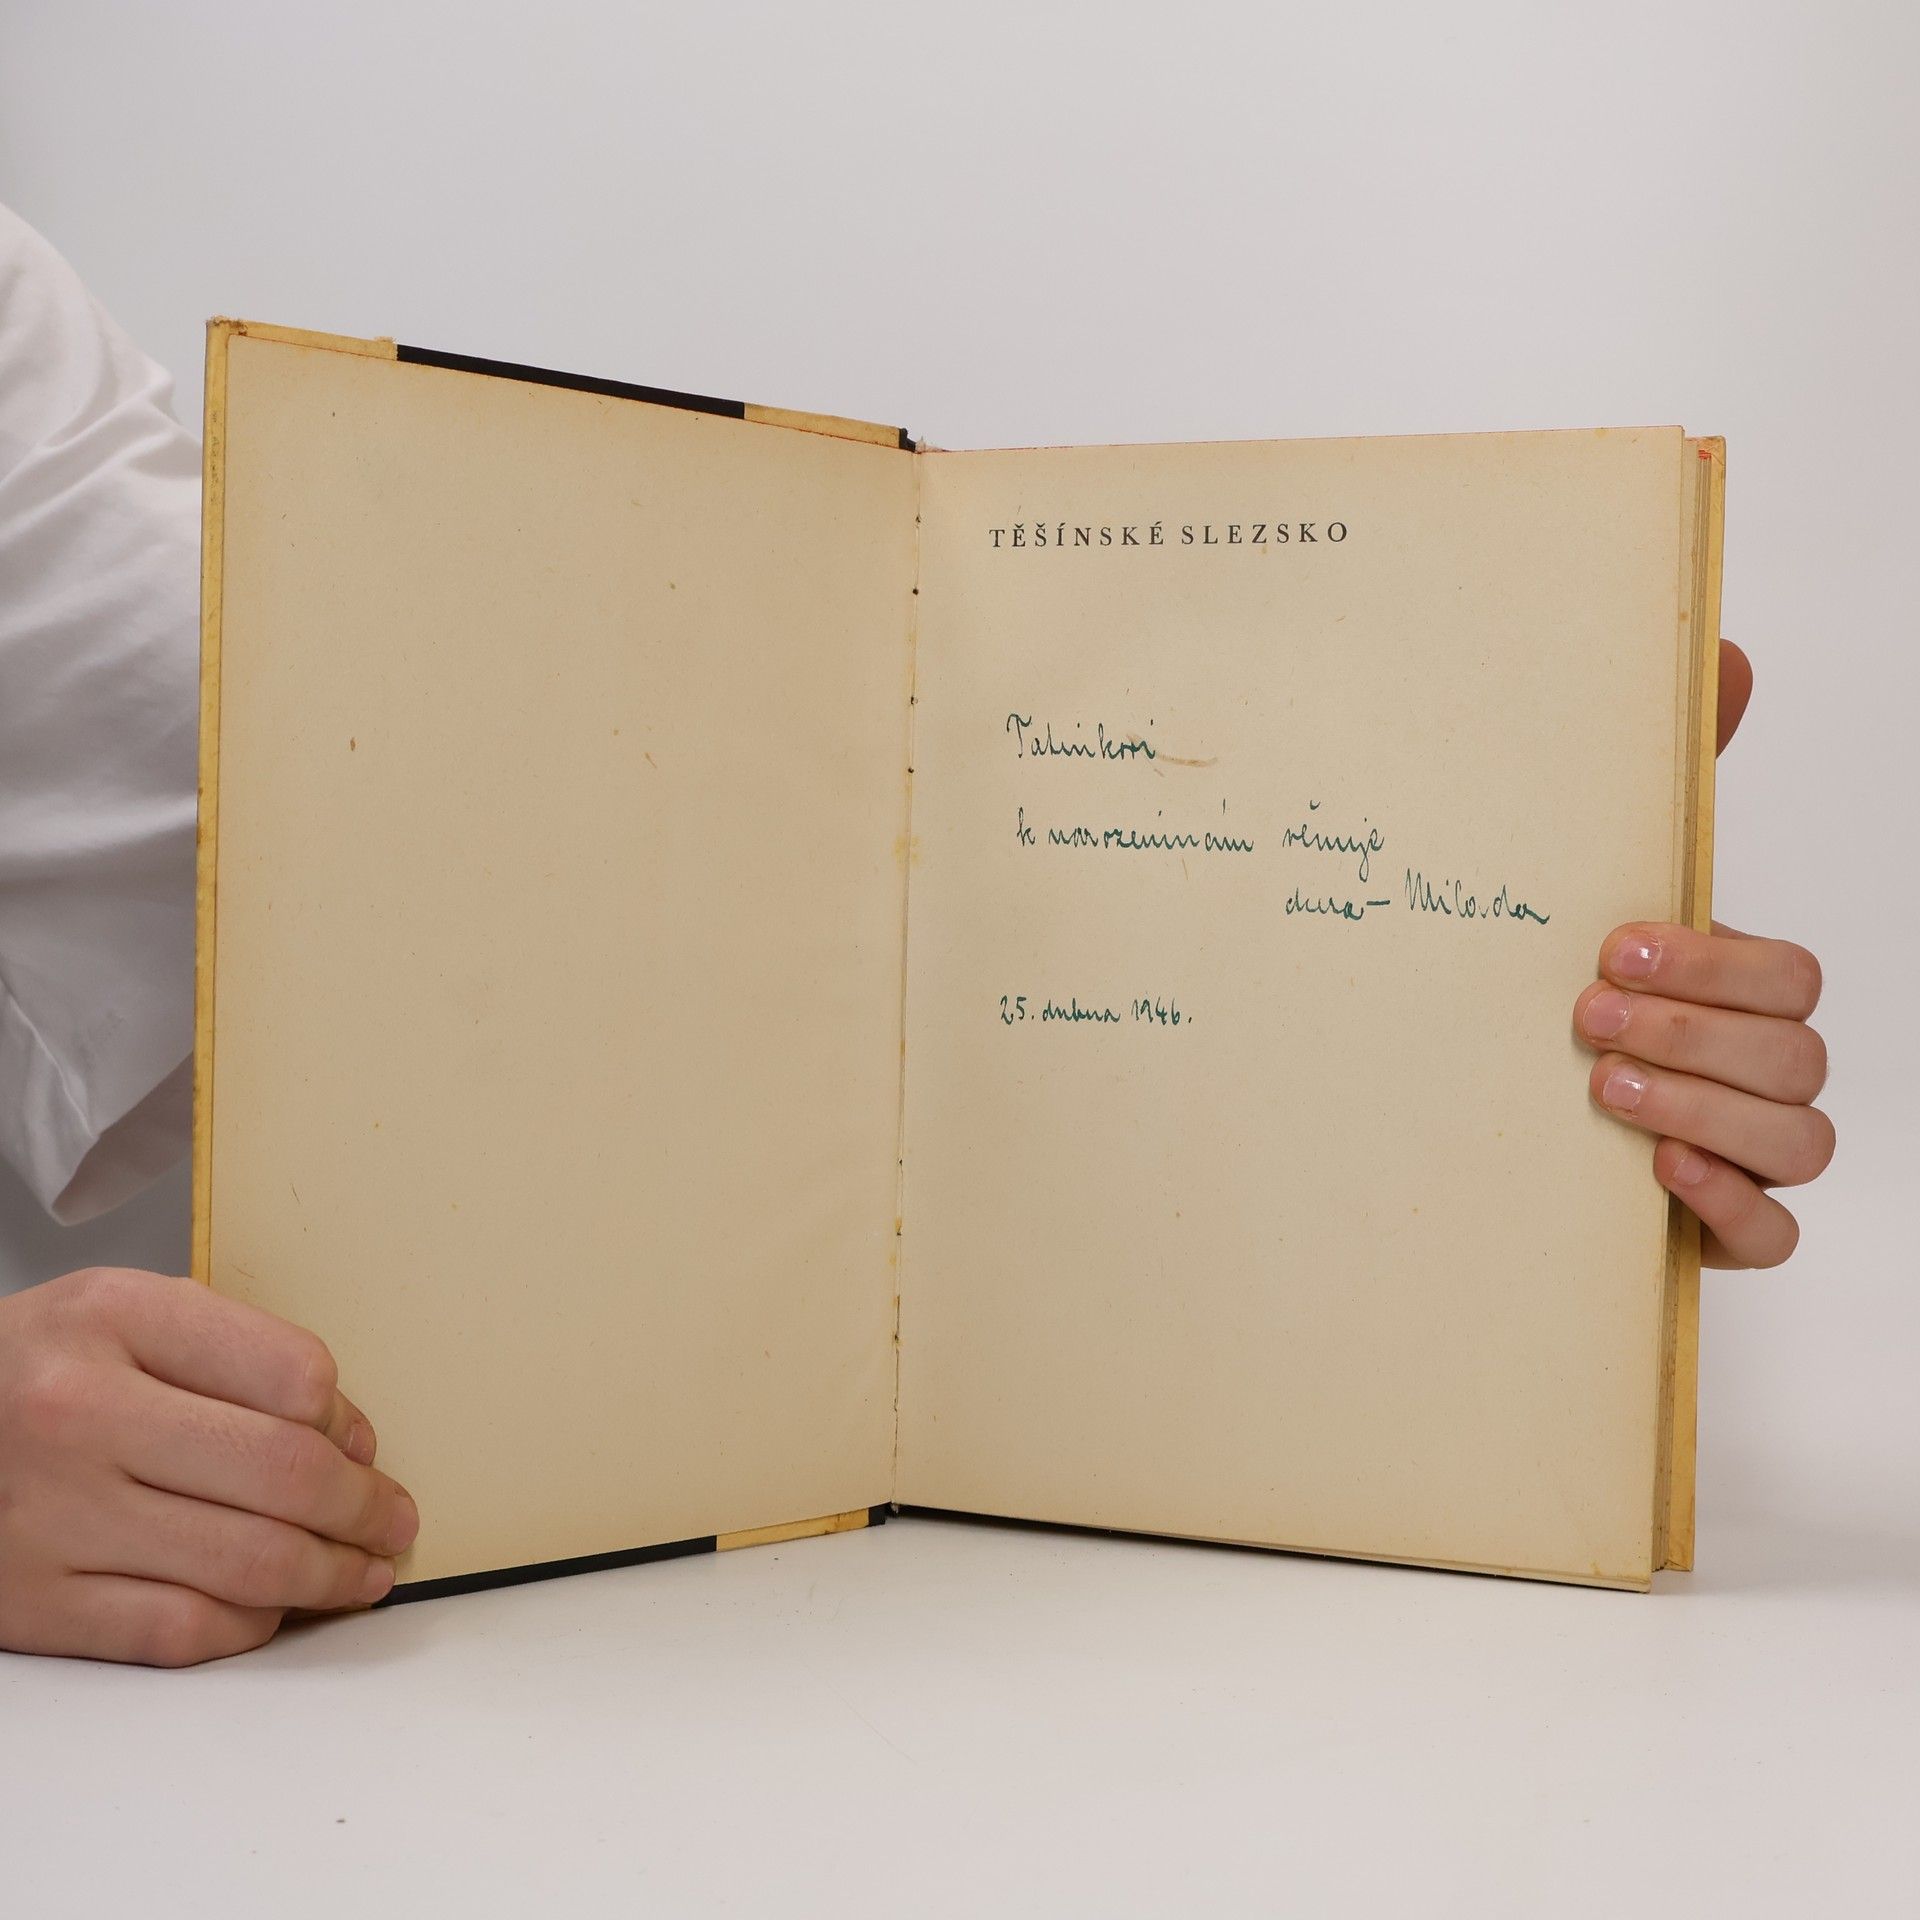 TĚŠÍNSKÉ SLEZSKO
Tatínkovi
k narozeninám věnuje
dcera – Milada
25. dubna 1946.